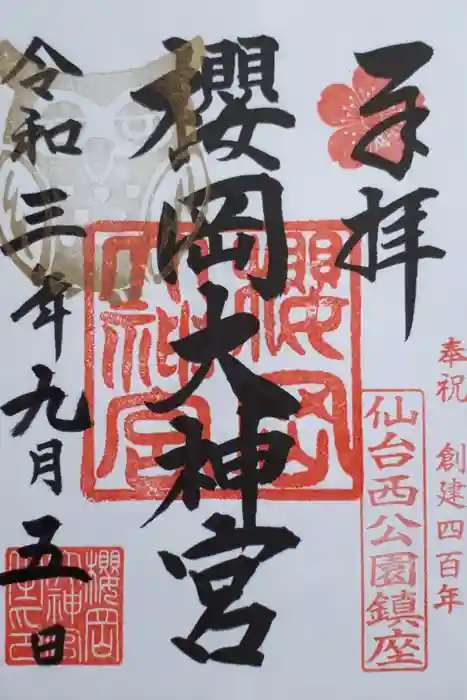 奉祝 創建四百年
奉拝
仙台西公園鎮座
櫻岡大神宮
櫻岡
大神宮
令和三年九月五日